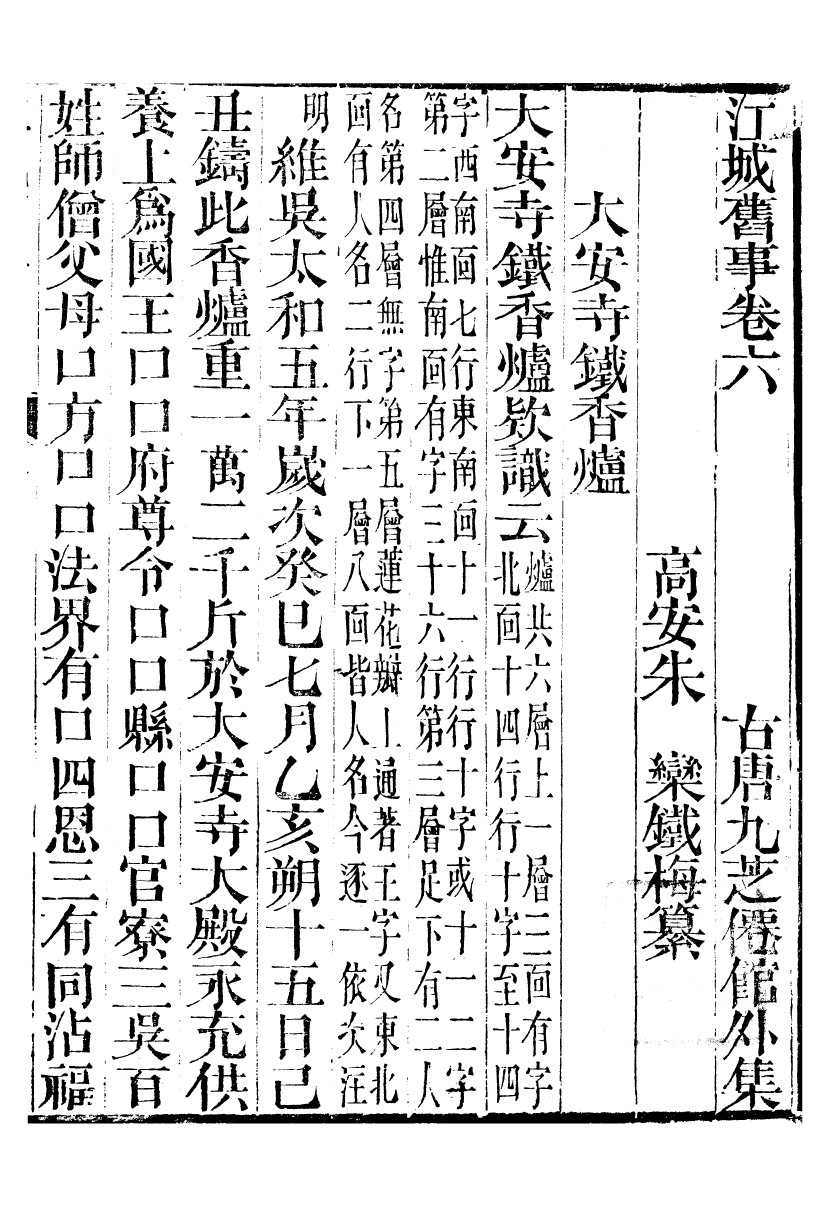 江城舊事卷六　古唐九芝僊館外集
高安朱　欒鐵梅纂
大安寺鐵香爐
大安寺鐵香爐欵識云
爐共六層上一層三面有字
北面十四行行十字至十四
字西南面七行東南面十一行行十字或十一二字
第二層惟南面有字三十六行第三層足下有二人
名第四層無字第五層蓮花瓣上通著王字又東北
面有人名二行下一層八面皆人名今逐一依次注
明
維吳太和五年歲次癸巳七月乙亥朔十五日己
丑鑄此香爐重一萬二千斤於大安寺大殿永充供
養上爲國王口口府尊令口口縣口口官寮三吳百
姓師僧父母口方口口法界有口四恩三有同沾福